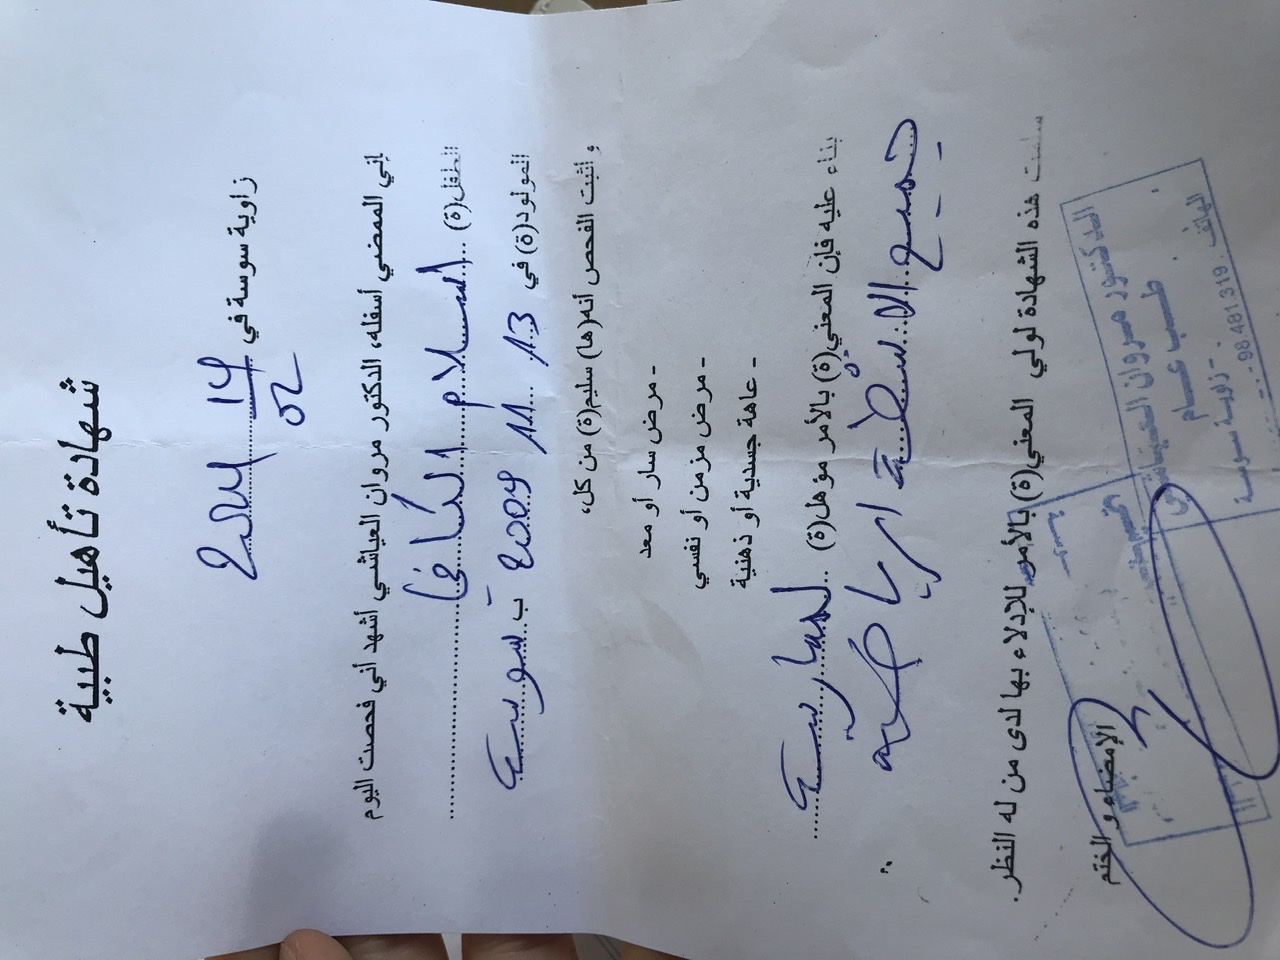 شهادة تأهيل طبية
زاوية سوسة في
إني الممضي أسفله، الدكتور مروان العياشي أشهد أني فحصت اليوم
الطفل(ة) ... اسلام الكافي
المولود(ة) في 13 11 2009 ب سوسة
و أثبت الفحص أنه(ها) سليم(ة) من كل،
- مرض سار أو معد
- مرض مزمن أو نفسي
- عاهة جسدية أو ذهنية
بناء عليه فإن المعني(ة) بالأمر مؤهل(ة) ... لممارسة
جميع الانشطة الرياضية
سلمت هذه الشهادة لولي المعني(ة) بالأمر للإدلاء بها لدى من له النظر.
الإمضاء و الختم
الدكتور مروان العياشي
طب عام
- زاوية سوسة
الهاتف 98 481 319